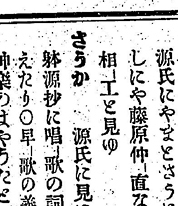 源氏にやまとさう
しにや藤原仲–直な
相–工と見ゆ
さうか　源氏に見
躰源抄に唱–歌の詞
えたり〇早–歌の義
神樂のはやうたと